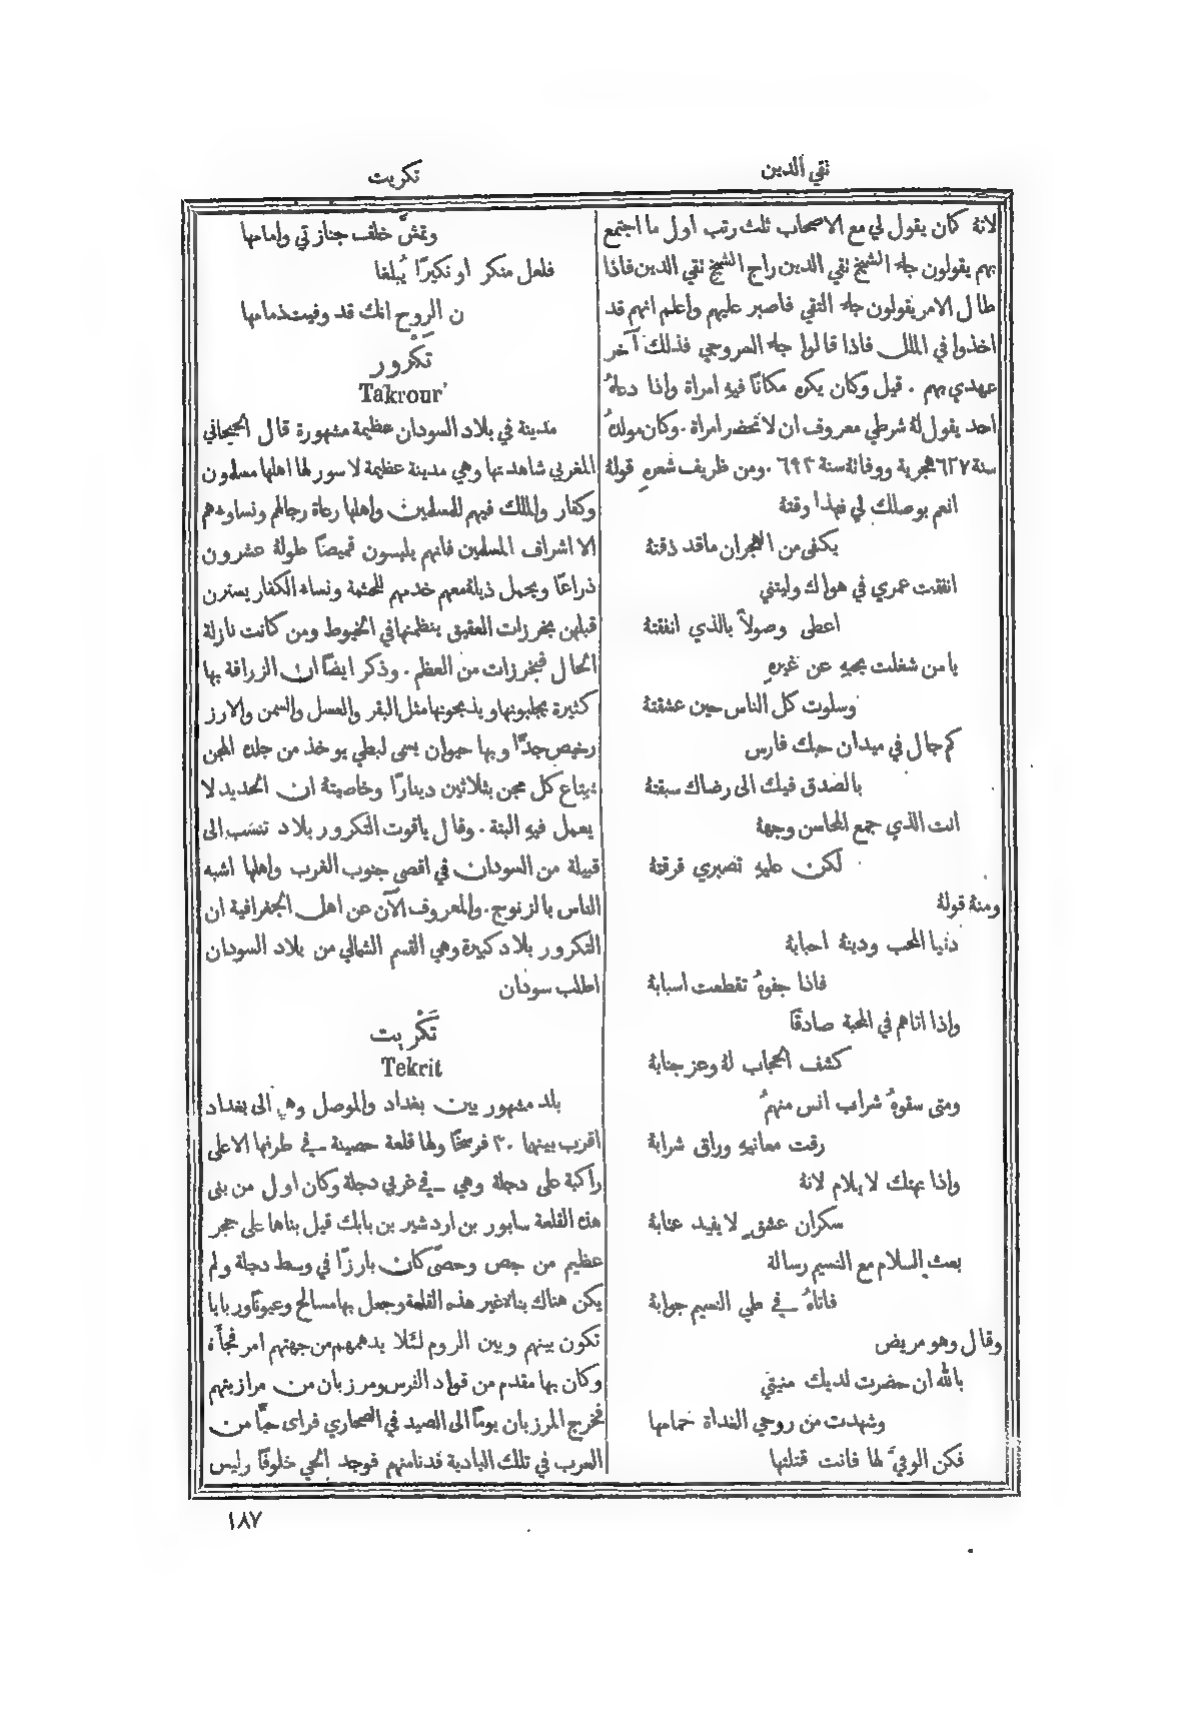 تقي الدين
تكريت
لانهُ كان يقول لي مع الاصحاب ثلث رتب اول ما اجتمع
بهم يقولون جاء الشيخ تقي الدين راح الشيخ تقي الدين فاذا
طال الامر يقولون جاء التقي فاصبر عليهم واعلم انهم قد
اخذوا في الملل فاذا قالوا جاء السروجي فذلك آخر
عهدي بهم . قيل وكان يكره مكانًا فيهِ امراة واذا دعاهُ
احد يقول لهُ شرطي معروف ان لا تحضر امراة . وكان مولدهُ
سنة ٦٢٧ هجرية ووفاتهُ سنة ٦٩٣ . ومن ظريف شعرهِ قولهُ
انعم بوصلك لي فهذا وقتهُ
يكفي من الهجران ما قد ذقتهُ
انفقت عمري في هواك وليتني
اعطى وصولاً بالذي انفقتهُ
يا من شغلت بحبهِ عن غيرهِ
وسلوت كل الناس حين عشقتهُ
كم جال في ميدان حبك فارس
بالصدق فيك الى رضاك سبقتهُ
انت الذي جمع المحاسن وجههُ
لكن عليهِ تصبري فرقتهُ
ومنهُ قولهُ
دنيا المحب ودينهُ احبابهُ
فاذا جفوهُ تقطعت اسبابهُ
واذا اتاهم في المحبة صادقًا
كشف الحجاب لهُ وعز جنابهُ
ومتى سقوهُ شراب انس منهمُ
رقت معانيهِ وراق شرابهُ
واذا تهتك لا يلام لانهُ
سكران عشقٍ لا يفيد عتابهُ
بعث السلام مع النسيم رسالة
فاتاهُ في طي النسيم جوابهُ
وقال وهو مريض
بالله ان حضرت لديك منيتي
وشهدت من روحي الغداة حمامها
فكن الوفيَّ لها فانت قتلتها
وتمشَّ خلف جنازتي وامامها
فلعل منكر او نكيرًا يُبلغا
ن الروح انك قد وفيت ذمامها
تَكْرُور
Takrour
مدينة في بلاد السودان عظيمة مشهورة قال
المغربي شاهدتها وهي مدينة عظيمة لا سور لها اهلها مسلمون
وكفار والملك فيهم للمسلمين واهلها رعاة رجالهم ونساوهم
الا اشراف المسلمين فانهم يلبسون قميصًا طولهُ عشرون
ذراعًا ويحمل ذيلهُ معهم خدمهم للحشمة ونساء الكفار يسترن
قبلهن بخرزات العقيق ينظمنها في الخيوط ومن كانت نازلة
الحال فبخرزات من العظم . وذكر ايضًا ان الزرافة بها
كثيرة يجلبونها ويذبحونها مثل البقر والعسل والسمن والارز
رخيص جدًّا وبها حيوان يسمى لبطي يوخذ من جلدهِ المجن
يبتاع كل مجن بثلاثين دينارًا وخاصيتهُ ان الحديد لا
يعمل فيهِ البتة . وقال ياقوت التكرور بلاد تنسب الى
قبيلة من السودان في اقصى جنوب الغرب واهلها اشبه
الناس بالزنوج . والمعروف الآن عن اهل الجغرافية ان
التكرور بلاد كبيرة وهي القسم الشمالي من بلاد السودان
اطلب سودان
تَكْريت
Tekrit
بلد مشهور بين بغداد والموصل وهي الى بغداد
اقرب بينهما ٣٠ فرسخًا ولها قلعة حصينة في طرفها الاعلى
راكبة على دجلة وهي في غربي دجلة وكان اول من بنى
هذه القلعة سابور بن اردشير بن بابك قيل بناها على حجر
عظيم من جص وحصًى كان بارزًا في وسط دجلة ولم
يكن هناك بناء غير هذه القلعة وجعل بها مسالح وعيونًا وربايا
تكون بينهم وبين الروم لئلا يدهمهم من جهتهم امر فجأة
وكان بها مقدم من قواد الفرس ومرزبان من مرازبتهم
فخرج المرزبان يومًا الى الصيد في الصحاري فراى حيًّا من
العرب في تلك البادية فدنا منهم فوجد الحي خلوفًا وليس
١٨٧